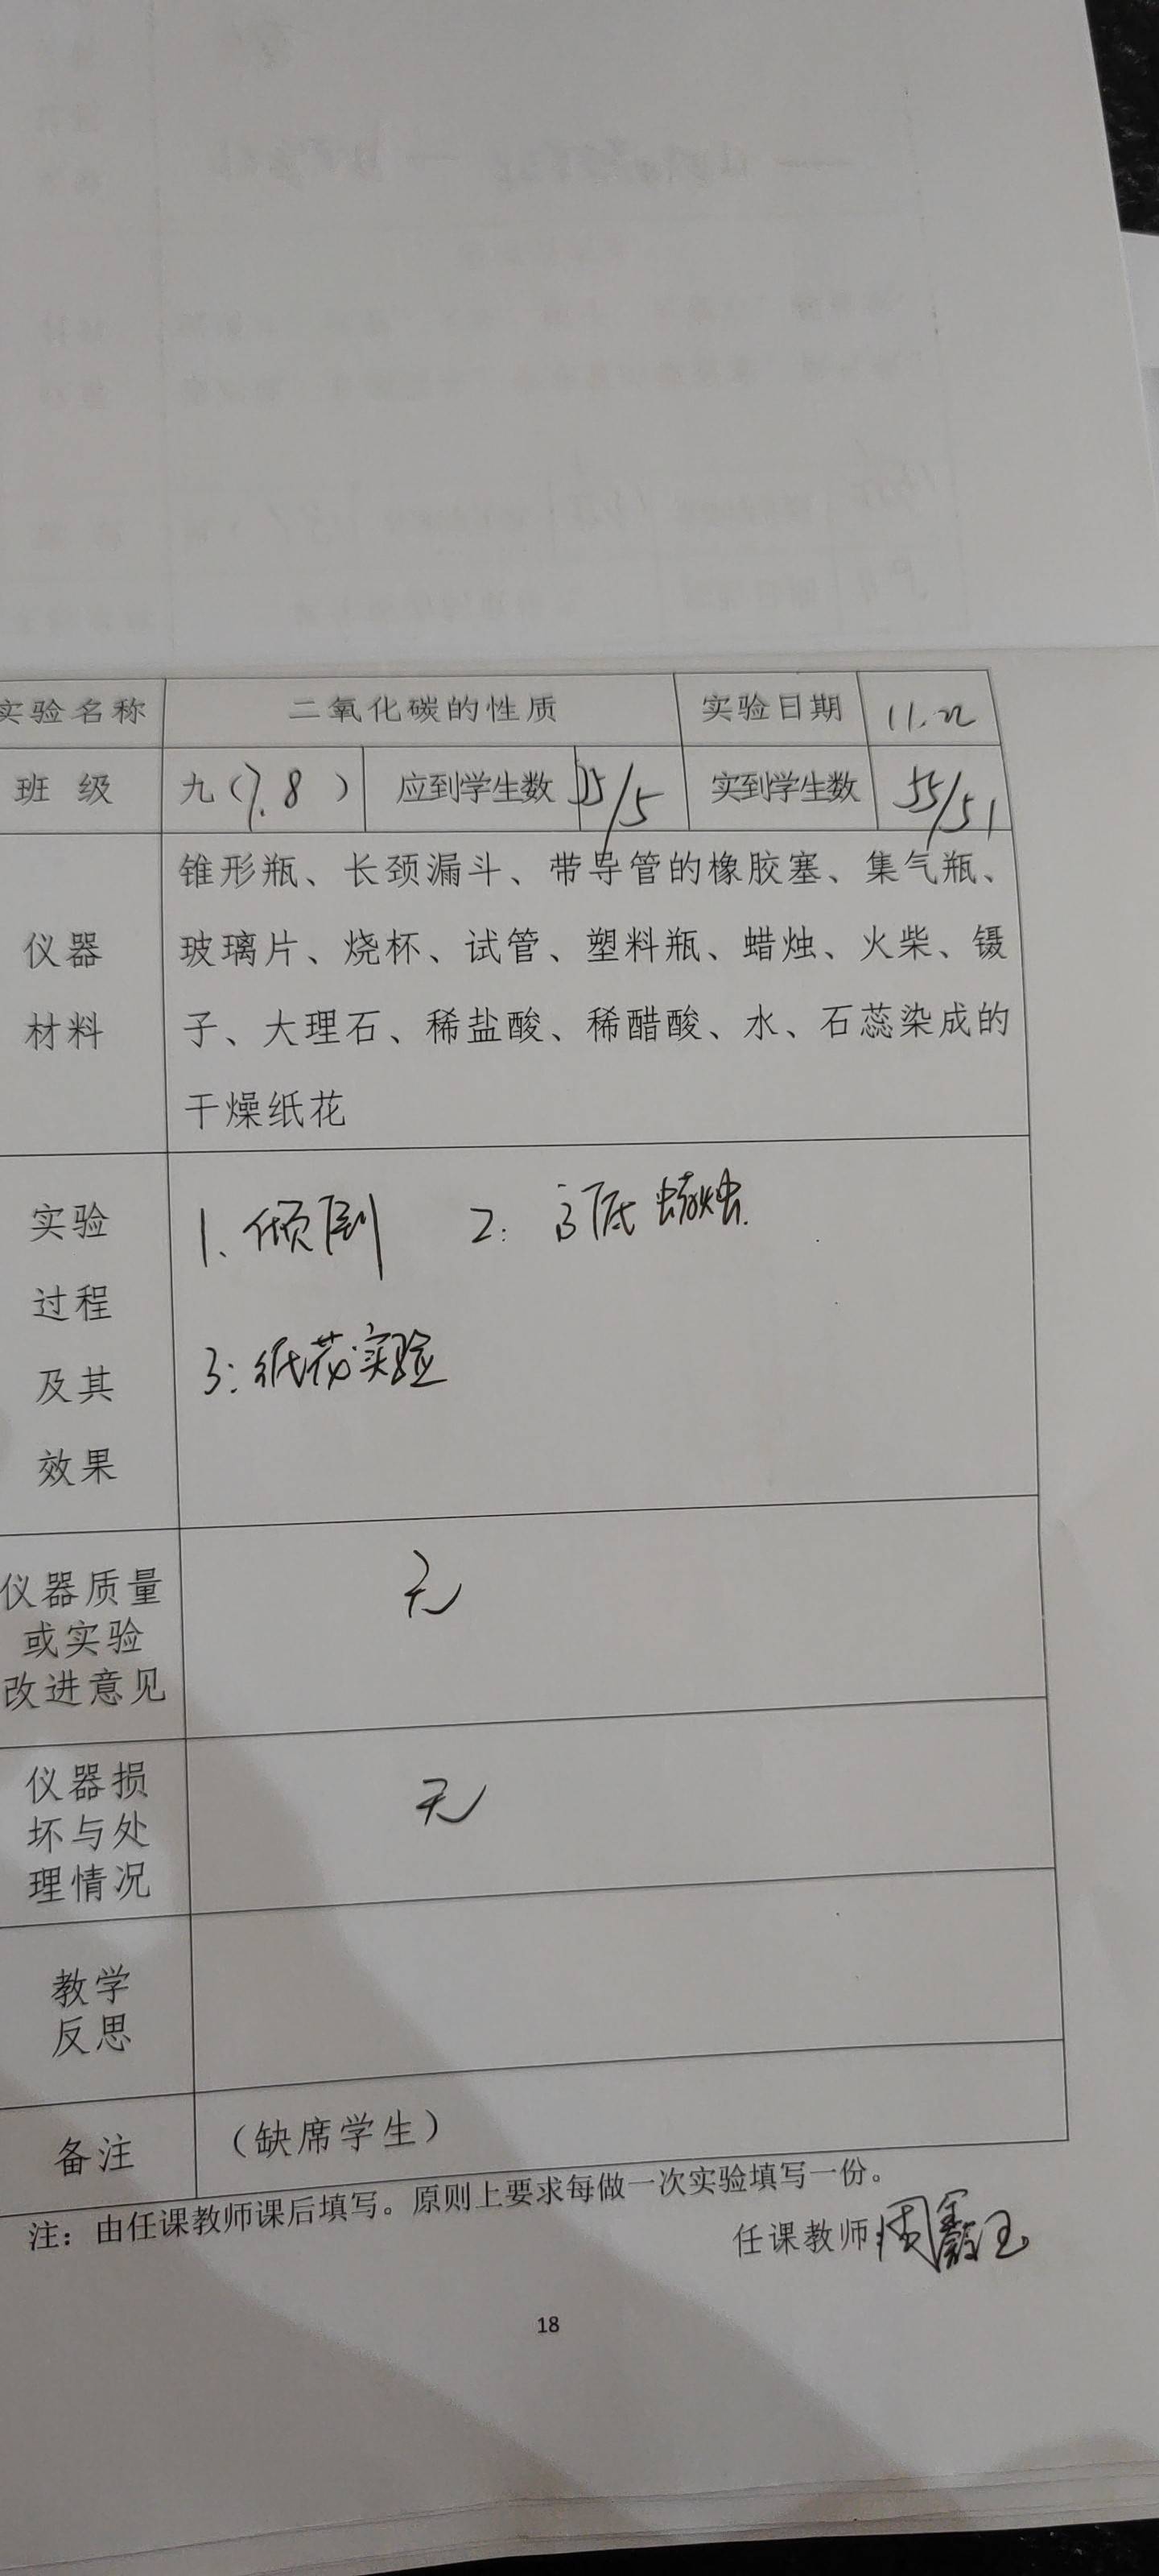 实验名称 二氧化碳的性质 实验日期 11.22
班 级 九（7.8） 应到学生数 55/5 实到学生数 55/51
仪器
材料
锥形瓶、长颈漏斗、带导管的橡胶塞、集气瓶、
玻璃片、烧杯、试管、塑料瓶、蜡烛、火柴、镊
子、大理石、稀盐酸、稀醋酸、水、石蕊染成的
干燥纸花
实验
过程
及其
效果
1、倾倒 2: 高低蜡烛
3: 纸花实验
仪器质量
或实验
改进意见
无
仪器损
坏与处
理情况
无
教学
反思
备注 （缺席学生）
注：由任课教师课后填写。原则上要求每做一次实验填写一份。
任课教师:周
18